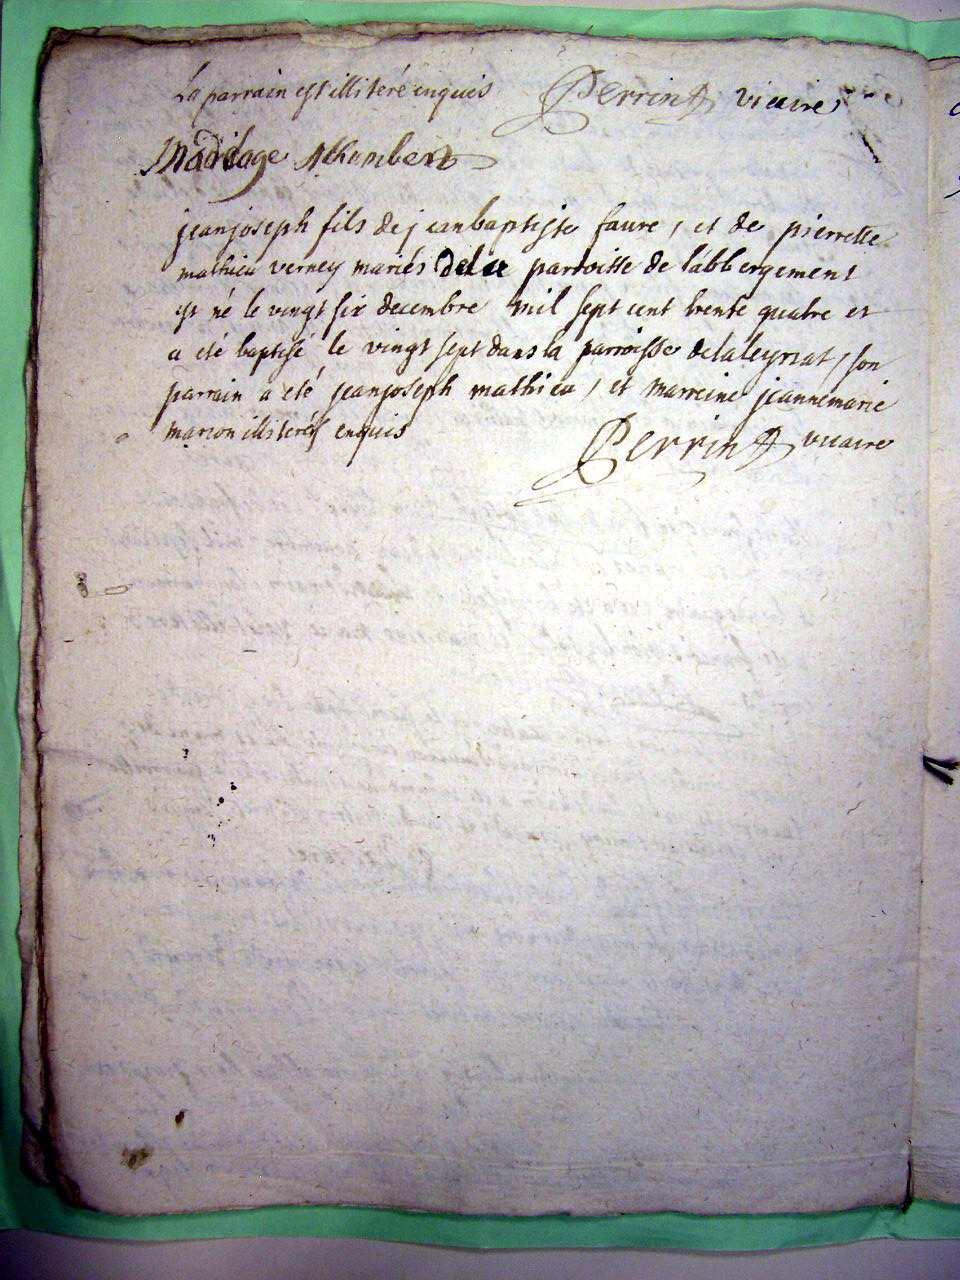 La parrain est illiteré enquis Perrin vicaire
Mariage
jeanjoseph fils de jeanbaptiste faure, et de pierrette
mathieu verney mariés de la parroisse de labbergement
est né le vingt six decembre mil sept cent trente quatre et
a eté baptisé le vingt sept dans la parroisse de laleyriat, son
parrain a eté jeanjoseph mathieu, et marreine jeannemarie
marion illiterés enquis Perrin vicaire